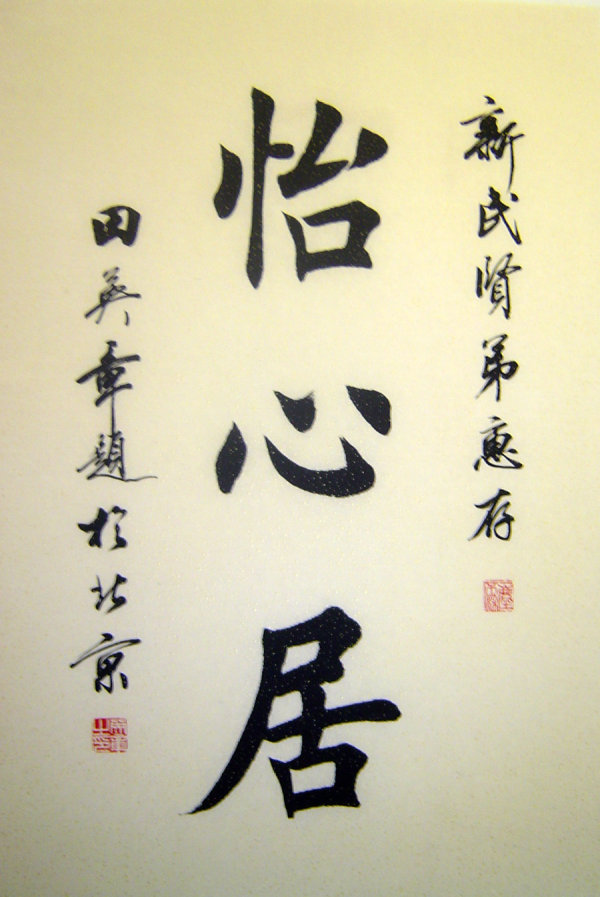 新民贤弟惠存
怡心居
田英章题于北京